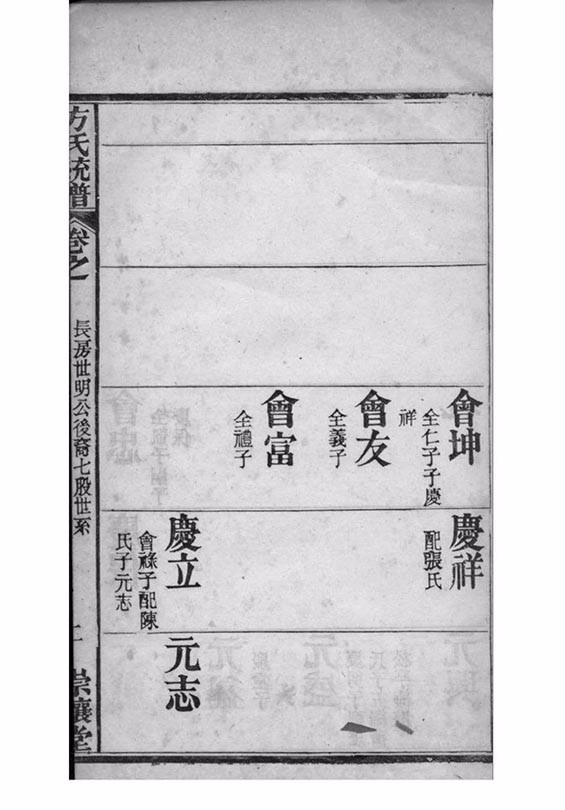 會坤
全仁子子慶
祥
會友
全義子
會富
全禮子
慶祥
配張氏
慶立
會祿子配陳
氏子元志
元志
方氏統譜
卷之
長房世明公後裔七股世系
崇讓堂